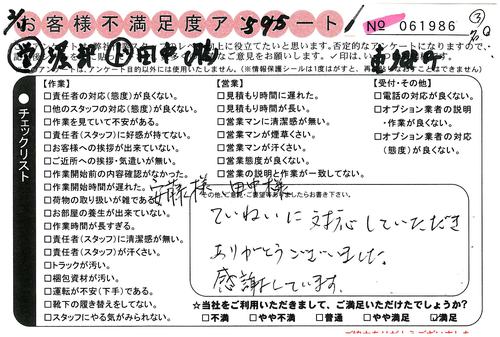 お客様不満足度アンケート
No 061986
【作業】
□責任者の対応(態度)が良くない。
□他のスタッフの対応(態度)が良くない。
□作業を見ていて不安がある。
□責任者(スタッフ)に好感が持てない。
□お客様への挨拶が出来ていない。
□ご近所への挨拶・気遣いが無い。
□作業開始前の内容確認がなかった。
□作業開始時間が遅れた。
□荷物の取り扱いが雑である。
□お部屋の養生が出来ていない。
□作業時間が長すぎる。
□責任者(スタッフ)に清潔感が無い。
□責任者(スタッフ)が汗くさい。
□トラックが汚い。
□梱包資材が汚い。
□運転が不安(下手)である。
□靴下の履き替えをしてない。
□スタッフにやる気がみられない。
【営業】
□見積時間に遅れた。
□見積もり時間が長い。
□営業マンに清潔感が無い。
□営業マンが煙草くさい。
□営業マンが汗くさい。
□営業態度が良くない。
□営業の説明と作業が一致してない。
【受付・その他】
□電話の対応が良くない。
□オプション業者の説明
・作業が良くない。
□オプション業者の対応
(態度)が良くない。
●チェックリスト
安藤様 田中様
ていねいに対応していただき
ありがとうございました。
感謝しています。
☆当社をご利用いただきまして、ご満足いただけたでしょうか?
□不満 □やや不満 □普通 □やや満足 ☑満足